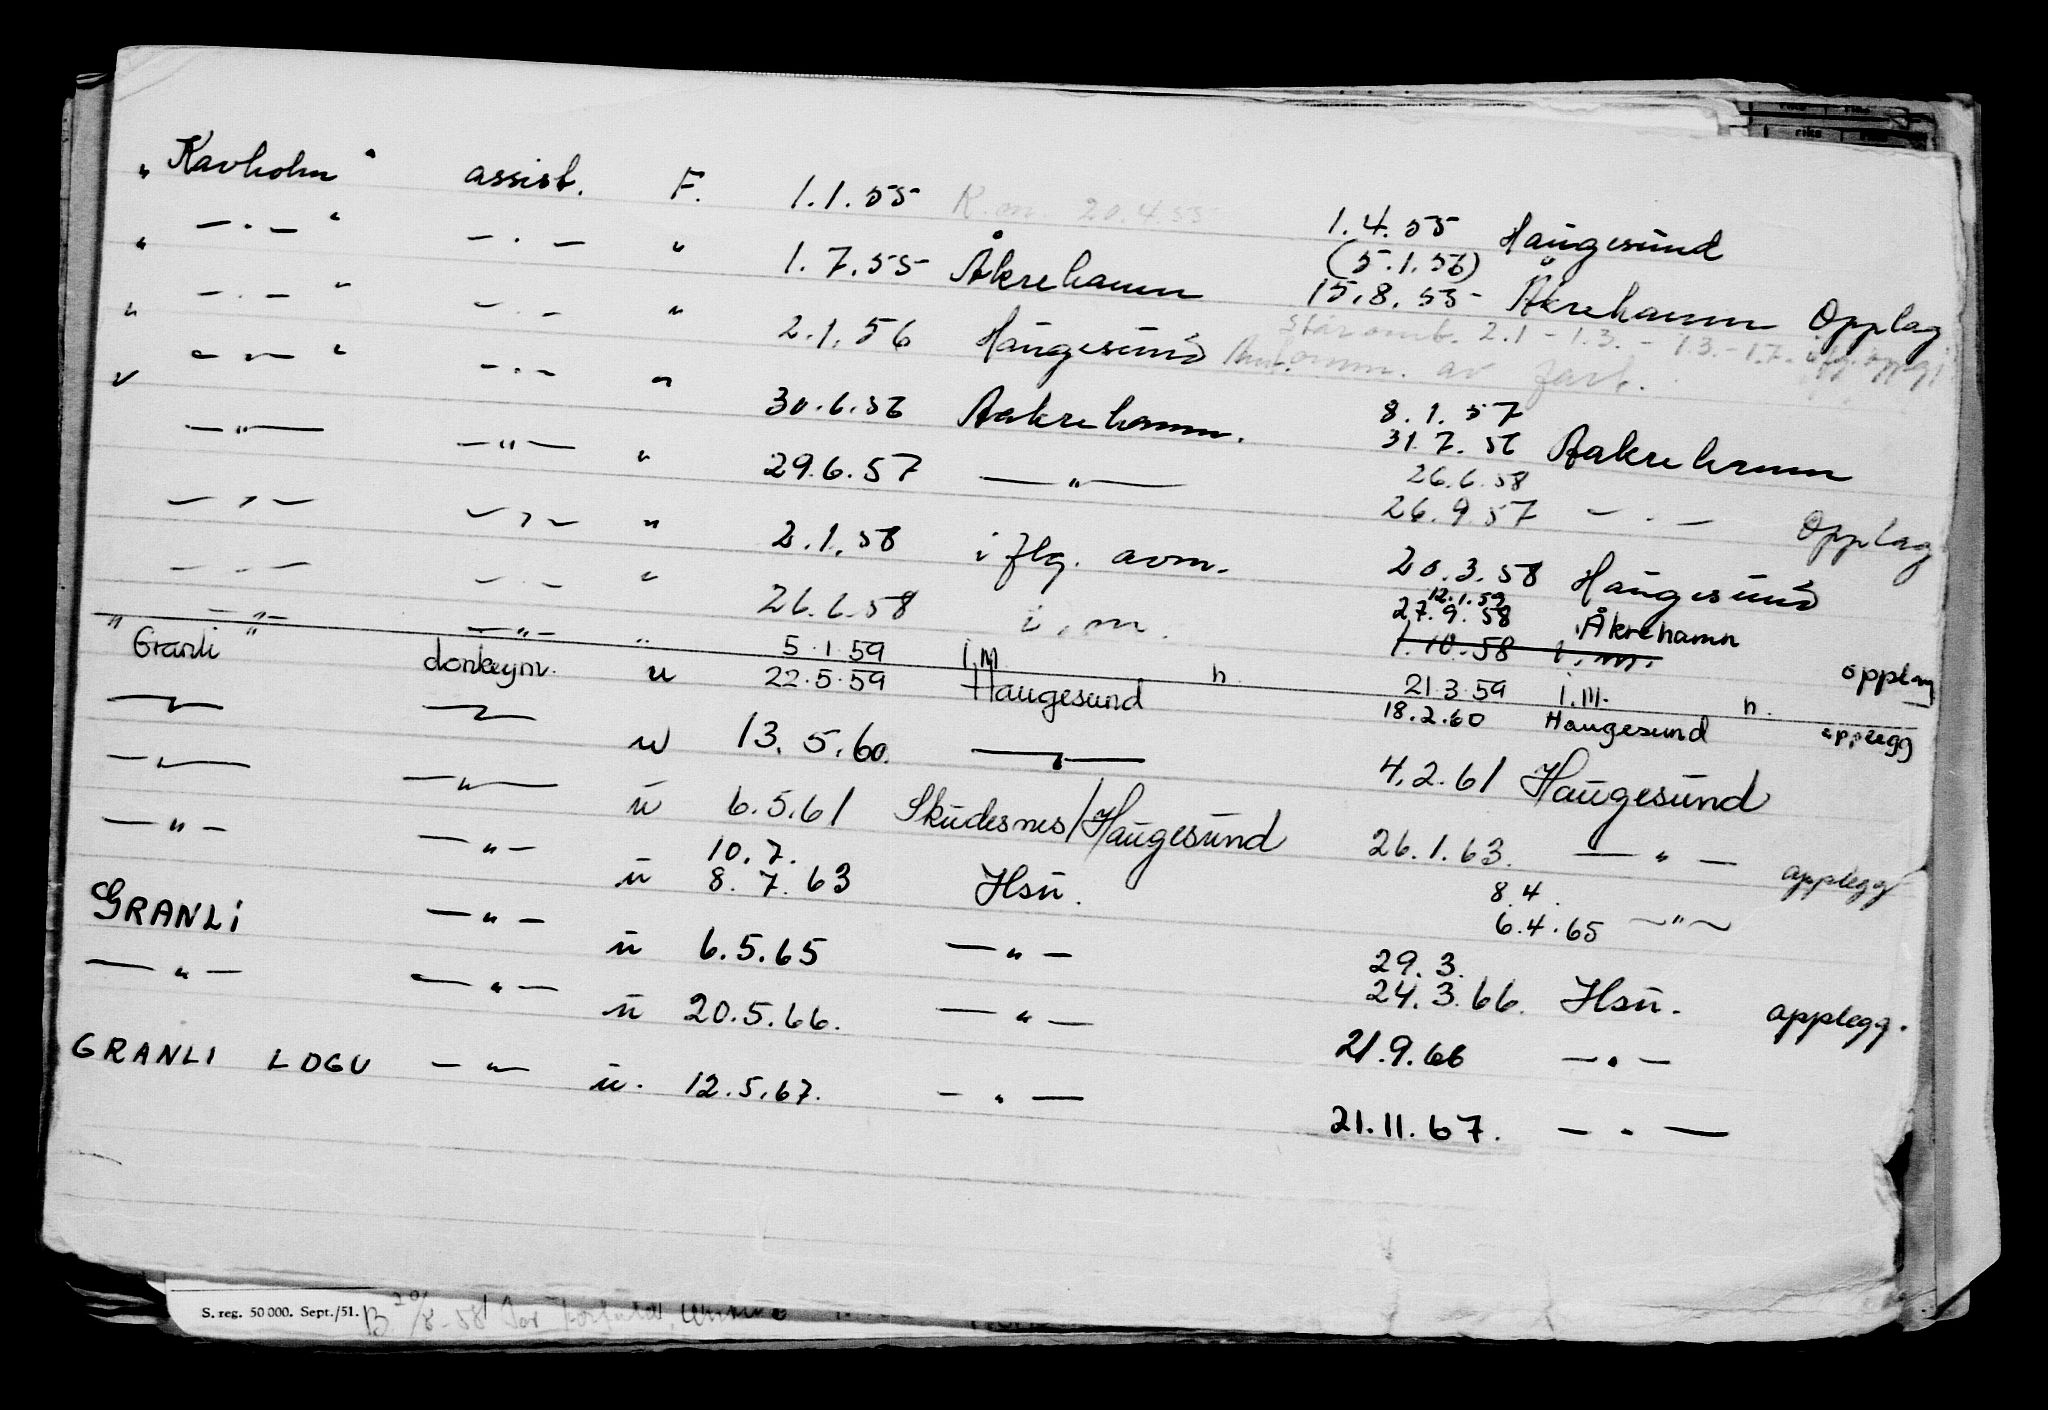 " Kavholm " assist. F. 1.1.55 K.m. 20.4.55 1.4.55 Haugesund
" — . — " — . — " 1.7.55 Åkrehamn (5.1.56) 15.8.55 Åkrehamn Opplag
" — . — " — . — " 2.1.56 Haugesund 2.1 - 1.3. - 1.3. - 1.7. av
" — " — " — . — " 30.6.56 Aakrehamn. 8.1.57 31.7.56 Aakrehamn
— " — — " — " 29.6.57 — " — 26.6.58 26.9.57 — . — Opplag
— " — — " — " 2.1.58 i flg. avm. 20.3.58 Haugesund
— . — — . — " 26.6.58 i.m. 12.1.59 27.9.58 Åkrehamn
— " — — " — " 5.1.59 i.m. h. 1.10.58 i.m. opplag
21.3.59 i.m. h.
" Granli " donkeym. u 22.5.59 Haugesund 18.2.60 Haugesund opplegg
— " — — " — u 13.5.60. — " — 4.2.61 Haugesund
— " — — " — u 6.5.61 Skudesnes/Haugesund 26.1.63. — " — opplegg
— " — — " — u 10.7. 8.7.63 Hsu. 8.4. 6.4.65 — " —
GRANLI — " — u 6.5.65 — " — 29.3. 24.3.66. Hsu. opplegg.
— " — — " — u 20.5.66. — " — 21.9.66 — " —
GRANLI LDGU — " — u. 12.5.67. — " — 21.11.67. — " —
S. reg. 50 000. Sept./51. B 20/8-58